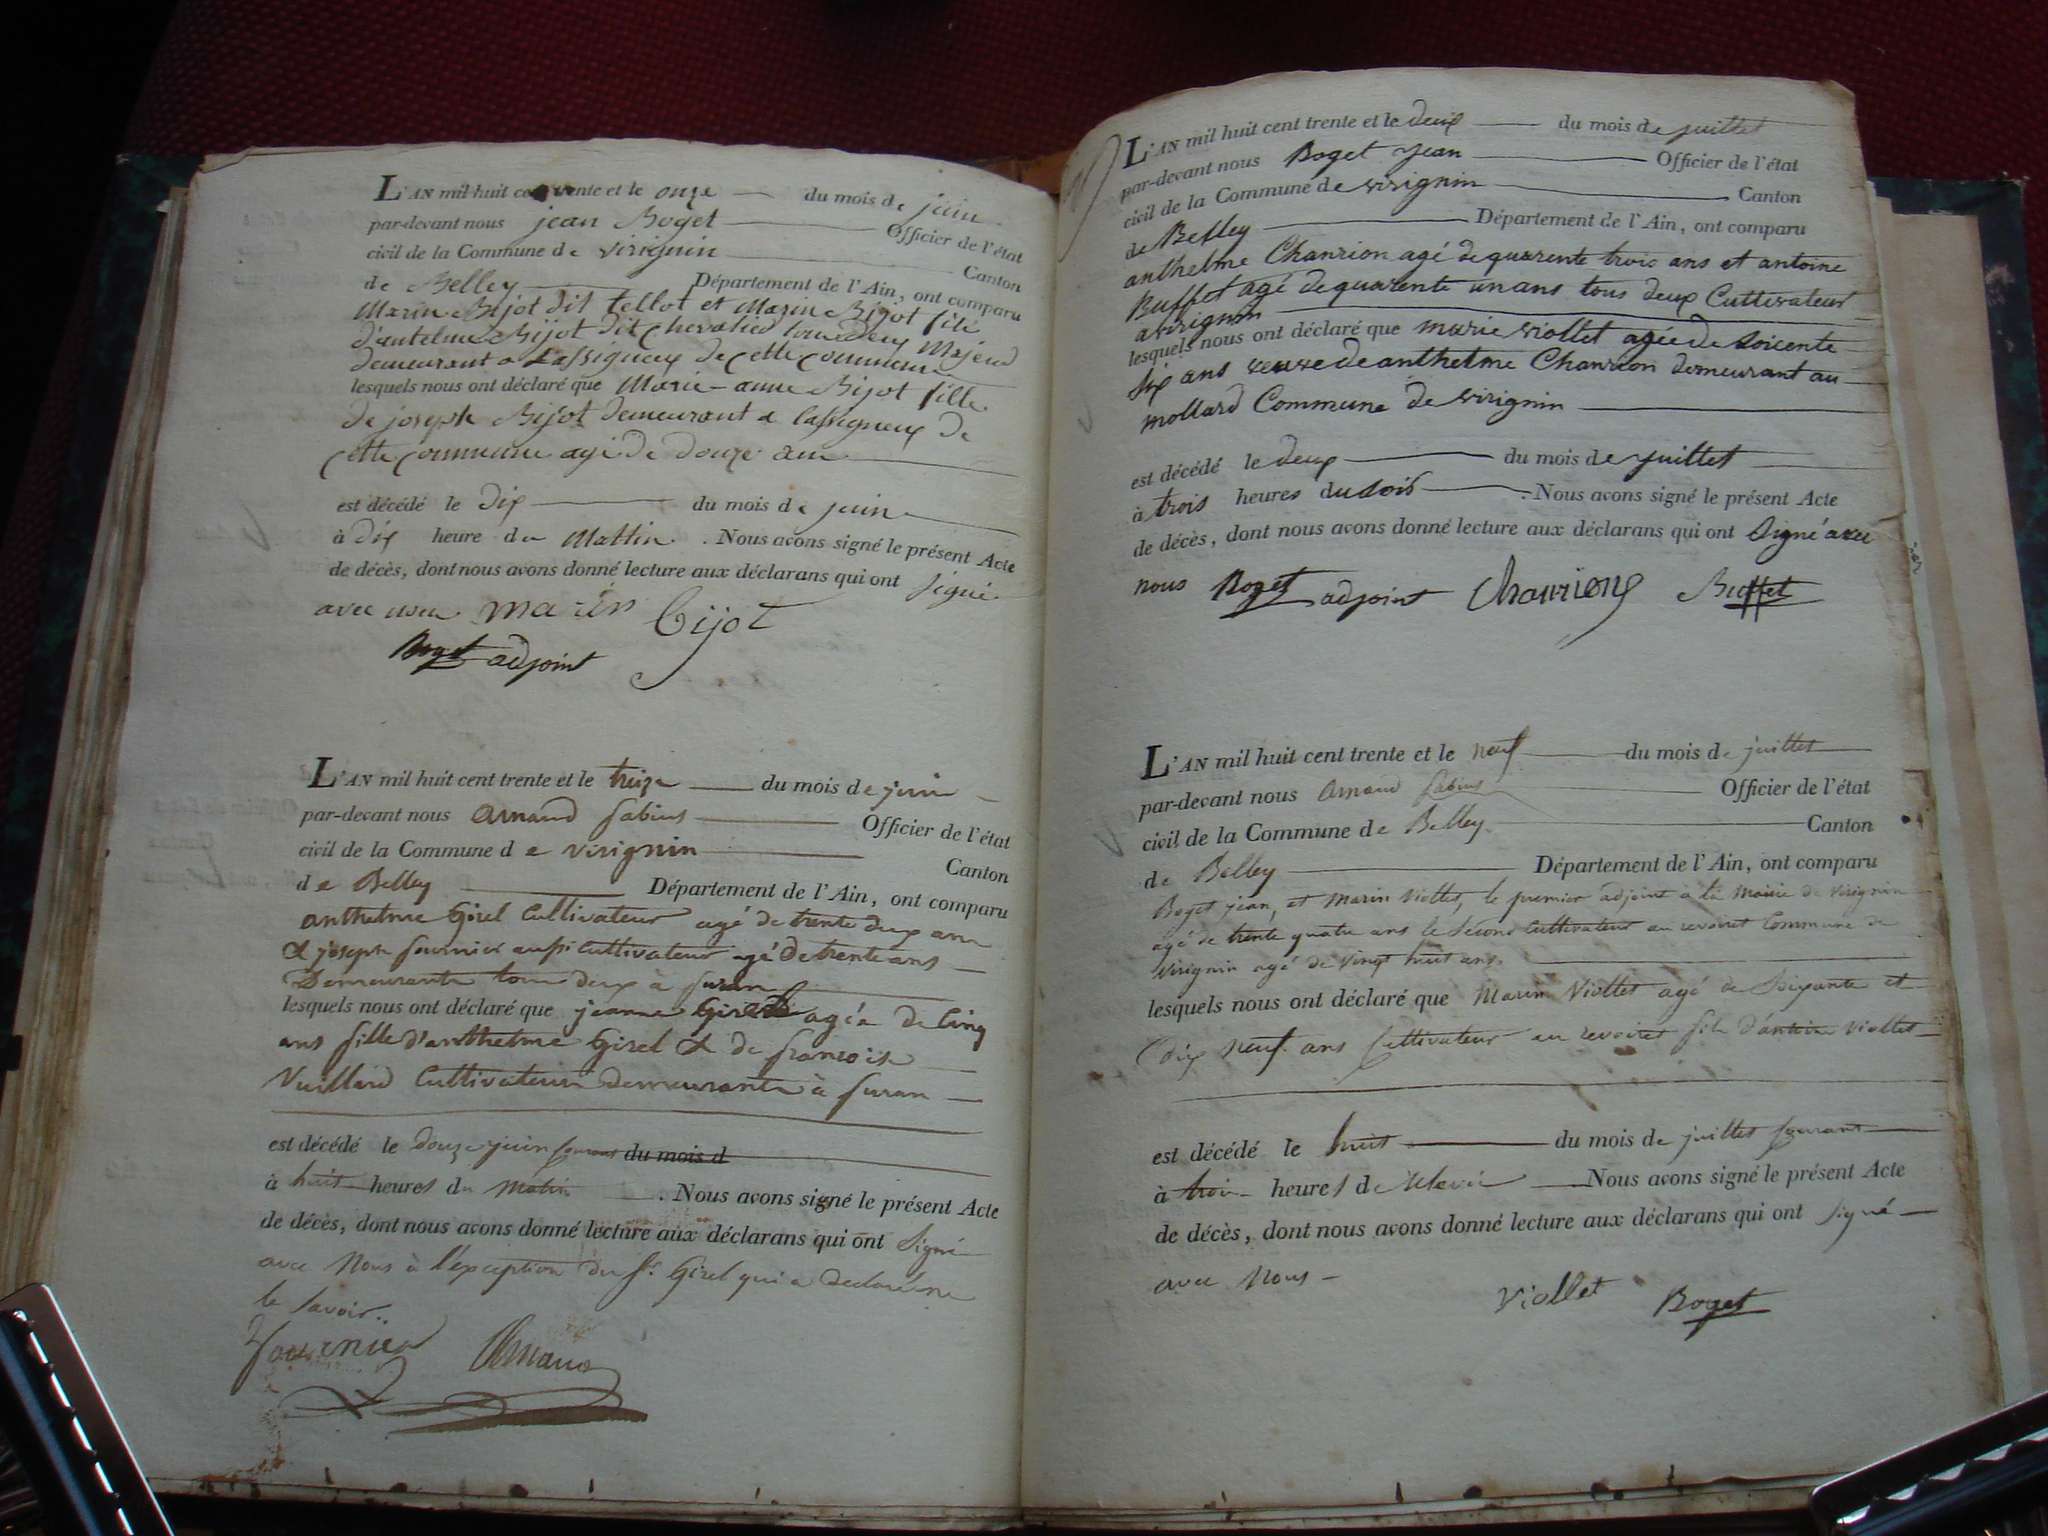 L'AN mil huit cent trente et le onze du mois de juin
par-devant nous jean Boget Officier de l'état
civil de la Commune de virignin Canton
de Belley Département de l'Ain, ont comparu
Marin Bijot dit tellot et Marin Bijot fils
d'antelme Bijot dit Chevalied tous deux Majeud
demeurant a Lassigneux de cette commune
lesquels nous ont déclaré que Marie-anne Bijot fille
de joseph Bijot demeurant a Lassigneux de
cette commune agé de douze ans
est décédé le dix du mois de juin
à dix heure du Mattin. Nous avons signé le présent Acte
de décès, dont nous avons donné lecture aux déclarans qui ont signé
avec nous marin Bijot
Boget adjoint
L'AN mil huit cent trente et le treize du mois de juin
par-devant nous Arnaud fabius Officier de l'état
civil de la Commune de virignin Canton
de Belley Département de l'Ain, ont comparu
anthelme Girel Cultivateur agé de trente deux ans
& joseph fournier aussi cultivateur agé de trente ans
Demeurants tous deux à furan
lesquels nous ont déclaré que jeanne Girel agée de Cinq
ans fille d'anthelme Girel & de francoise
Vuillard Cultivateurs demeurants à furan
est décédé le douze juin courant du mois d
à huit heures du matin. Nous avons signé le présent Acte
de décès, dont nous avons donné lecture aux déclarans qui ont signé
avec Nous à l'exception du Sr. Girel qui a declaré ne
le savoir..
fournier Arnaud
L'AN mil huit cent trente et le deux du mois de juillet
par-devant nous Boget jean Officier de l'état
civil de la Commune de virignin Canton
de Belley Département de l'Ain, ont comparu
anthelme Chanrion agé de quarente trois ans et antoine
Buffet agé de quarente un ans tous deux Cultivateur
a virignin
lesquels nous ont déclaré que marie viollet agée de soicente
six ans veuve de anthelme Chanrion demeurant au
mollard Commune de virignin
est décédé le deux du mois de juillet
à trois heures du soir. Nous avons signé le présent Acte
de décès, dont nous avons donné lecture aux déclarans qui ont signé avec
nous Boget adjoint Chanrion Buffet
L'AN mil huit cent trente et le neuf du mois de juillet
par-devant nous Arnaud fabius Officier de l'état
civil de la Commune de Belley Canton
de Belley Département de l'Ain, ont comparu
Boget jean, et Marin Viollet, le premier adjoint à la Mairie de virignin
agé de trente quatre ans le second Cultivateur au revoiret Commune de
Virignin agé de vingt huit ans.
lesquels nous ont déclaré que Marin Viollet agé de soixante et
dix neuf ans Cultivateur au revoiret fils d'antoine Viollet
est décédé le huit du mois de juillet courant
à trois heures de Nous avons signé le présent Acte
de décès, dont nous avons donné lecture aux déclarans qui ont signé
avec Nous
Viollet Boget